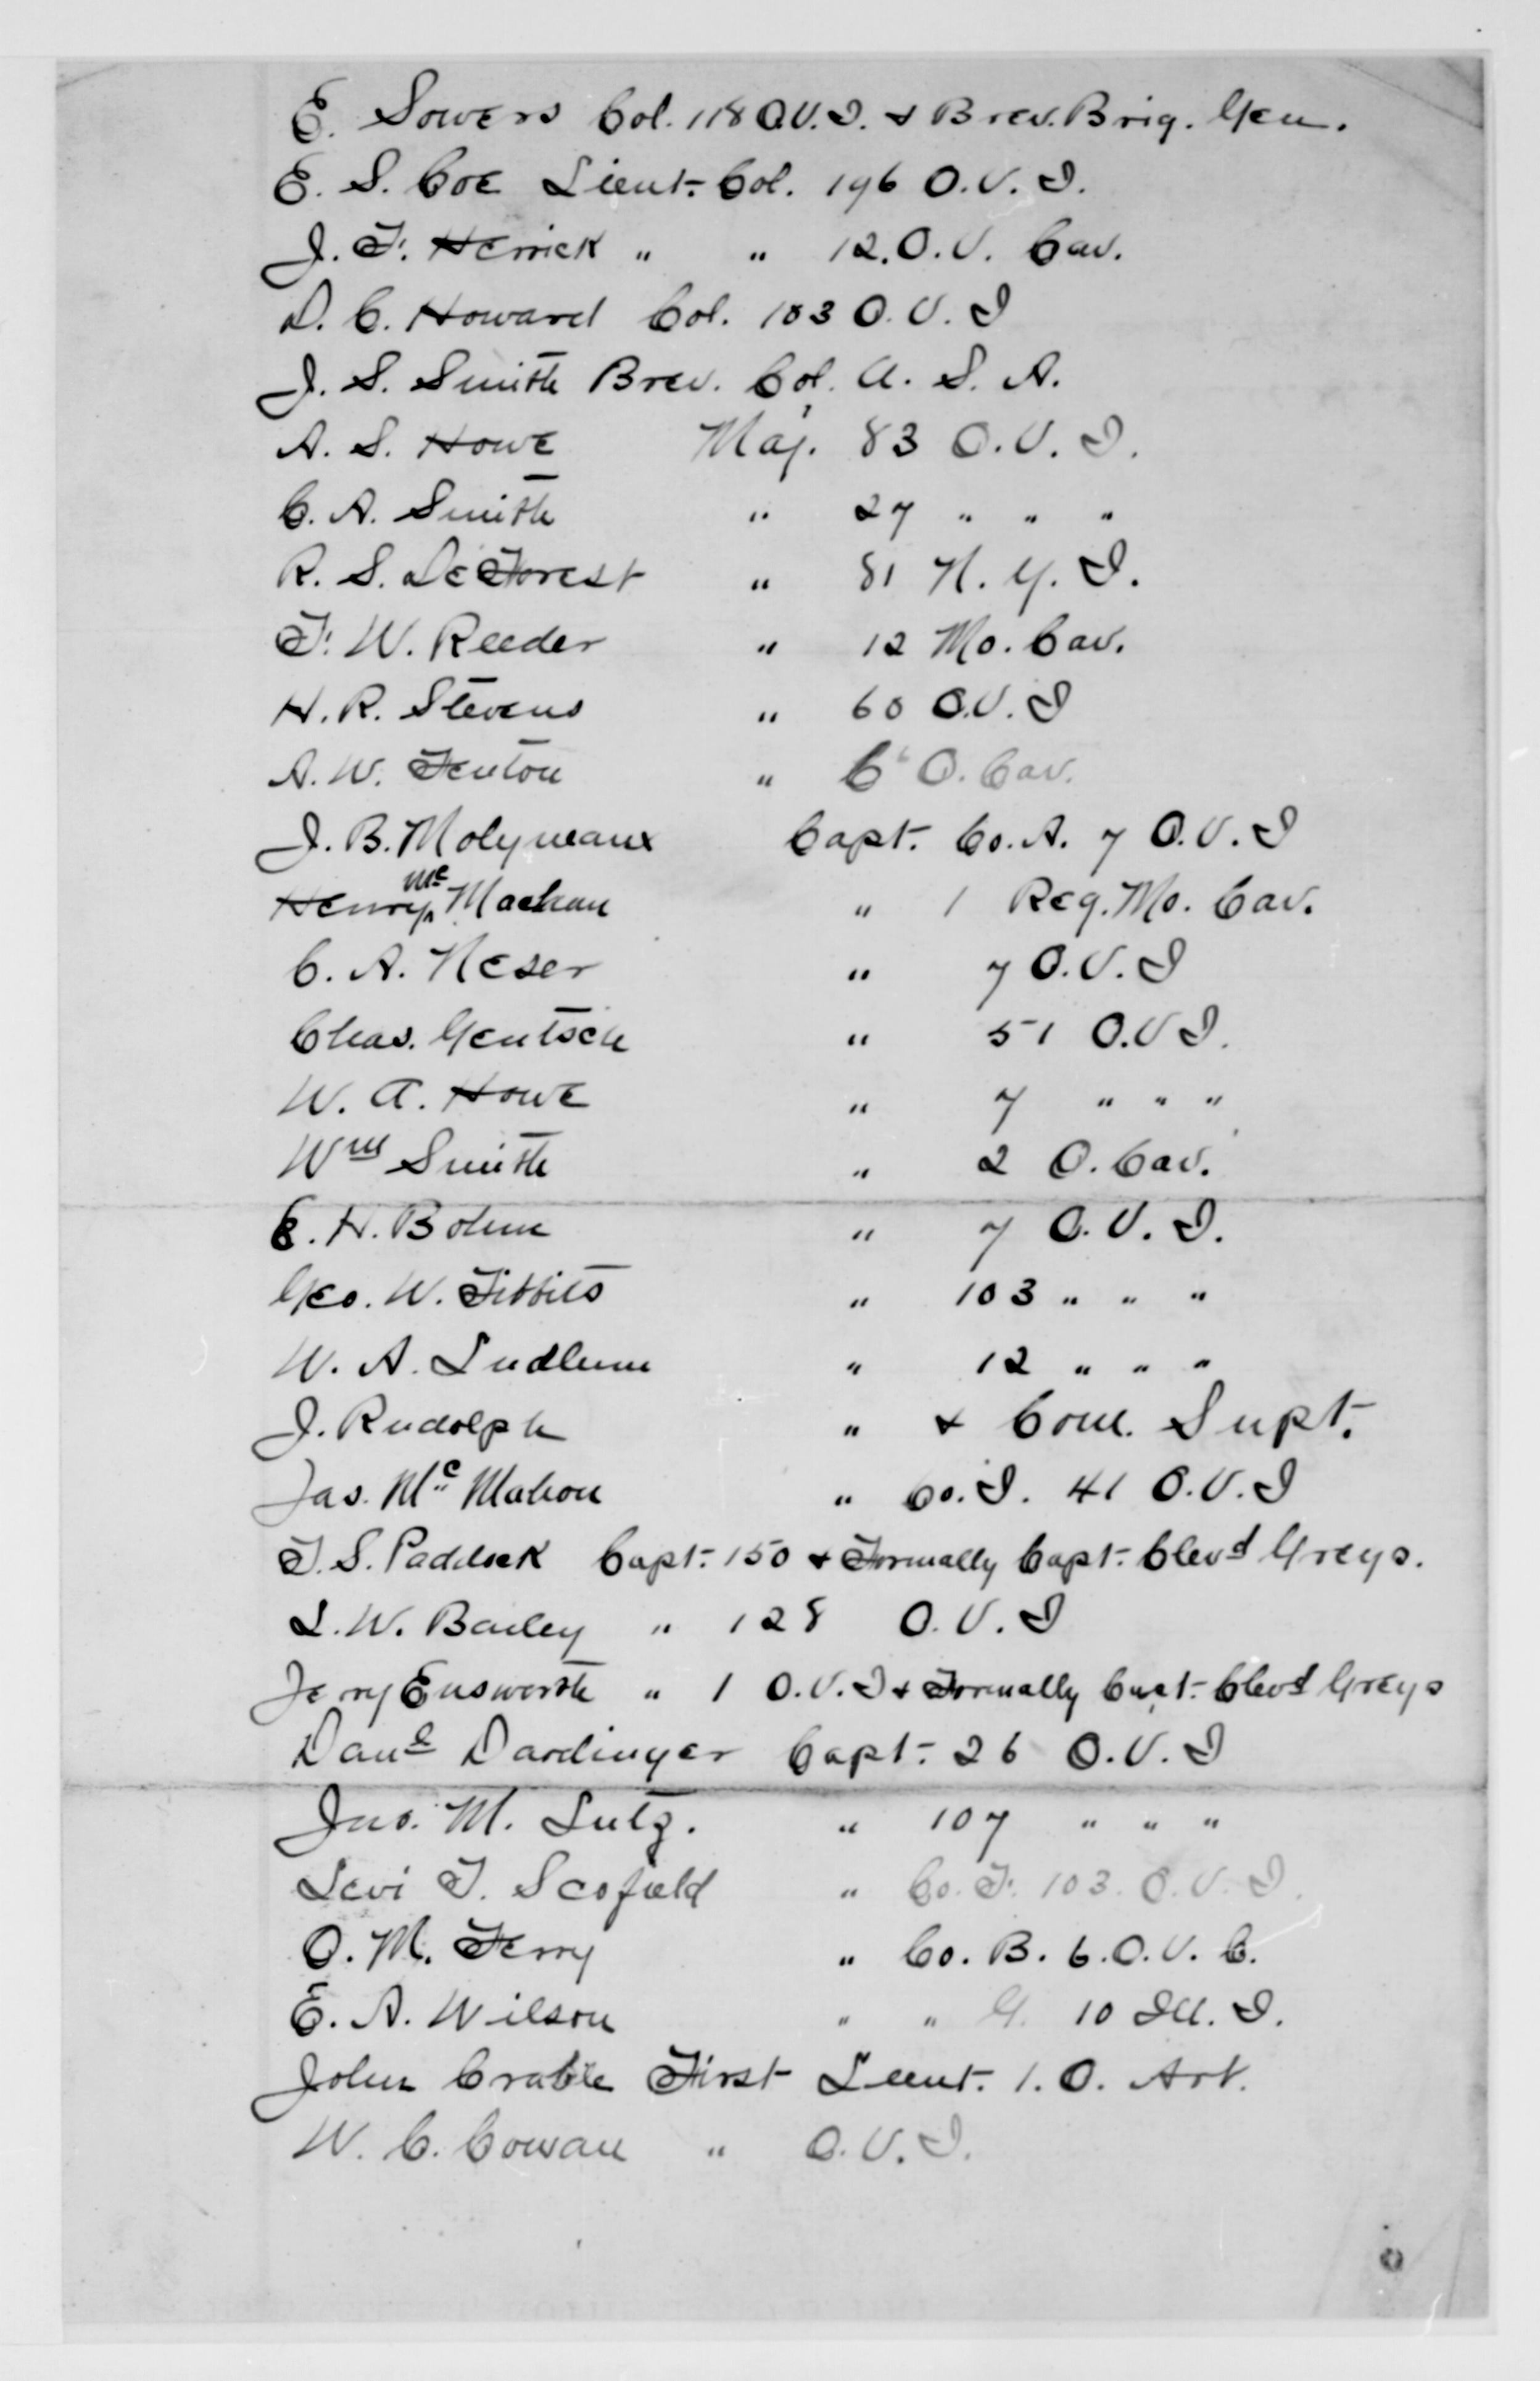 E. Sowers Col. 118 O.V.I. & Brev. Brig. Gen.
E. S. Coe Lieut. Col. 196 O.V.I.
J. F. Herrick " " 12. O.V. Cav.
D. C. Howard Col. 183 O.V.I
J. S. Smith Brev. Col. U. S. A.
A. S. Howe Maj. 83 O.V.I.
C. A. Smith " 27 " " "
R. S. DeForest " 81 N. Y. I.
F. W. Reeder " 12 Mo. Cav.
H. R. Stevens " 60 O.V.I
A. W. Fenton " 6 O. Cav.
J. B. Molyneaux Capt. Co. A. 7 O.V.I
Henry Mc Machan " 1 Reg. Mo. Cav.
C. A. Neser " 7 O.V.I
Chas. Gentsch " 51 O.V I.
W. A. Howe " 7 " " "
Wm Smith " 2 O. Cav.
E. H. Bohm " 7 O.V.I.
Geo. W. Tibbits " 103 " " "
W. A. Ludlum " 12 " " "
J. Rudolph " & Com. Supt.
Jas. Mc Mahon " Co. I. 41 O.V.I
T. S. Paddock Capt. 150 & Formally Capt. Clevd Greys.
L. W. Bailey " 128 O.V.I
Jerry Ensworth " 1 O.V.I & Formally Capt. Clevd Greys
Danl Dardinger Capt. 26 O.V.I
Jno. M. Lutz. " 107 " " "
Levi T. Scofield " Co. F. 103. O.V.I.
O. M. Ferry " Co. B. 6. O.V.C.
E. A. Wilson " " G. 10 Ill. I.
John Crable First Lieut. 1. O. Art.
W. C. Cowan " O.V.I.